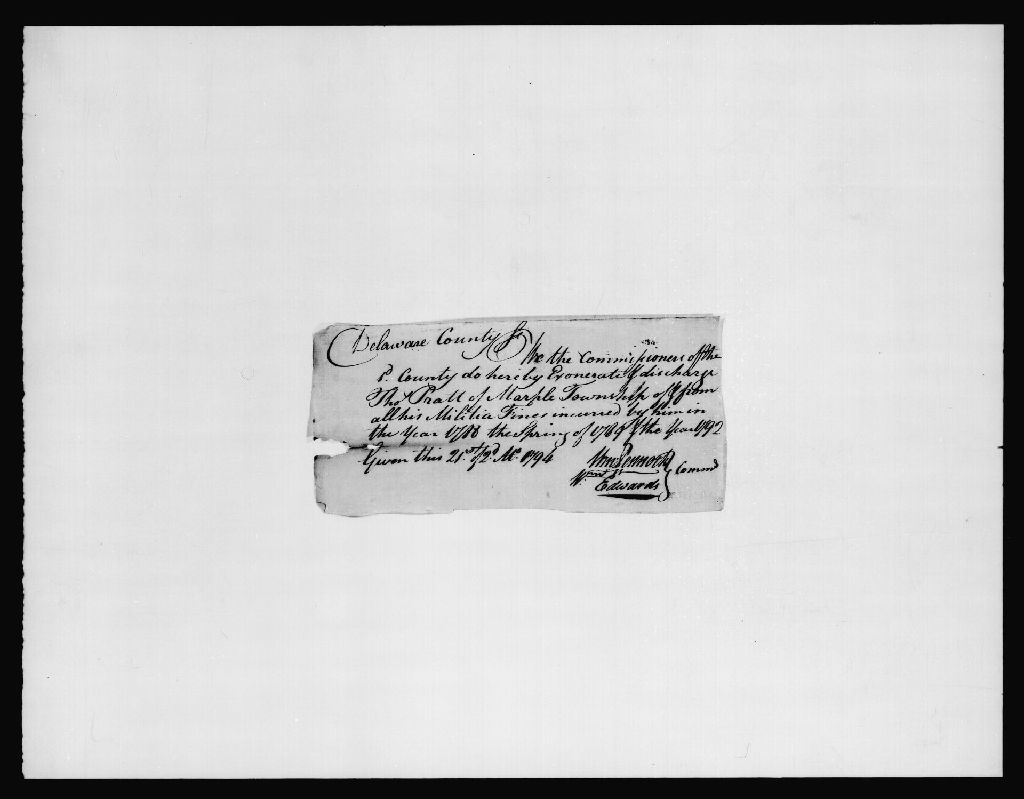 Delaware County Ss
We the Commissioners of the
sd. County do hereby Exonerate & discharge
Thos Pratt of Marple Township of & from
all his Militia Fines incurred by him in
the Year 1788 the Spring of 1789 & the Year 1792
Given this 21st of 2d Mo. 1794
Wm Pennock
Edwards
Commrs